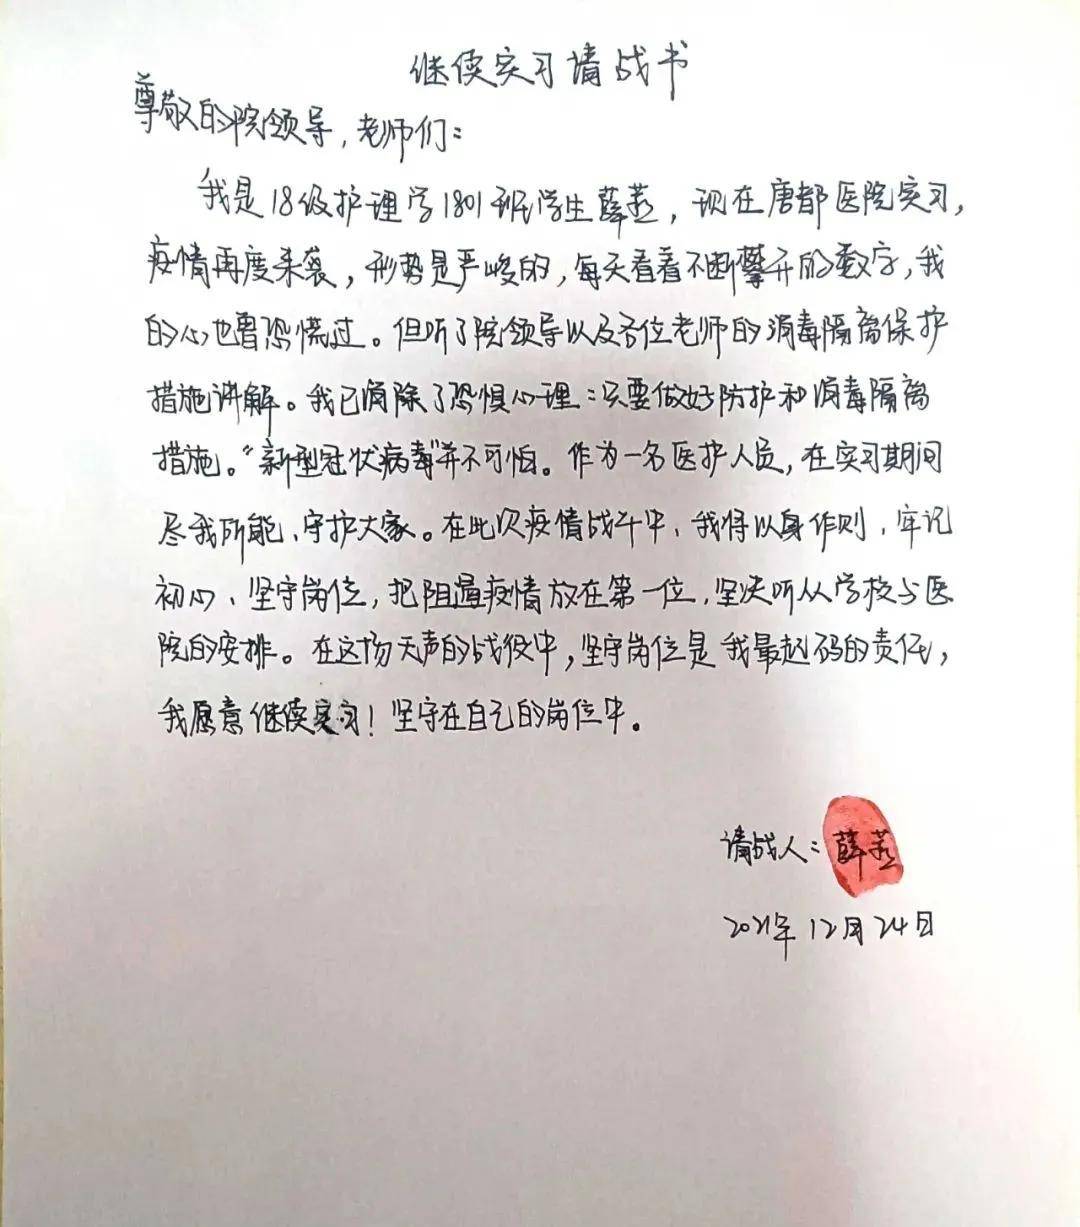 继续实习请战书
尊敬的院领导，老师们：
我是18级护理学1801班学生薛燕，现在唐都医院实习，
疫情再度来袭，形势是严峻的，每天看着不断攀升的数字，我
的心也曾恐慌过。但听了院领导以及各位老师的消毒隔离保护
措施讲解。我已消除了恐惧心理：只要做好防护和消毒隔离
措施。“新型冠状病毒”并不可怕。作为一名医护人员，在实习期间
尽我所能、守护大家。在此次疫情战斗中、我将以身作则，牢记
初心、坚守岗位，把阻遏疫情放在第一位，坚决听从学校与医
院的安排。在这场无声的战役中，坚守岗位是我最起码的责任，
我愿意继续实习！坚守在自己的岗位中。
请战人：薛燕
2021年12月24日